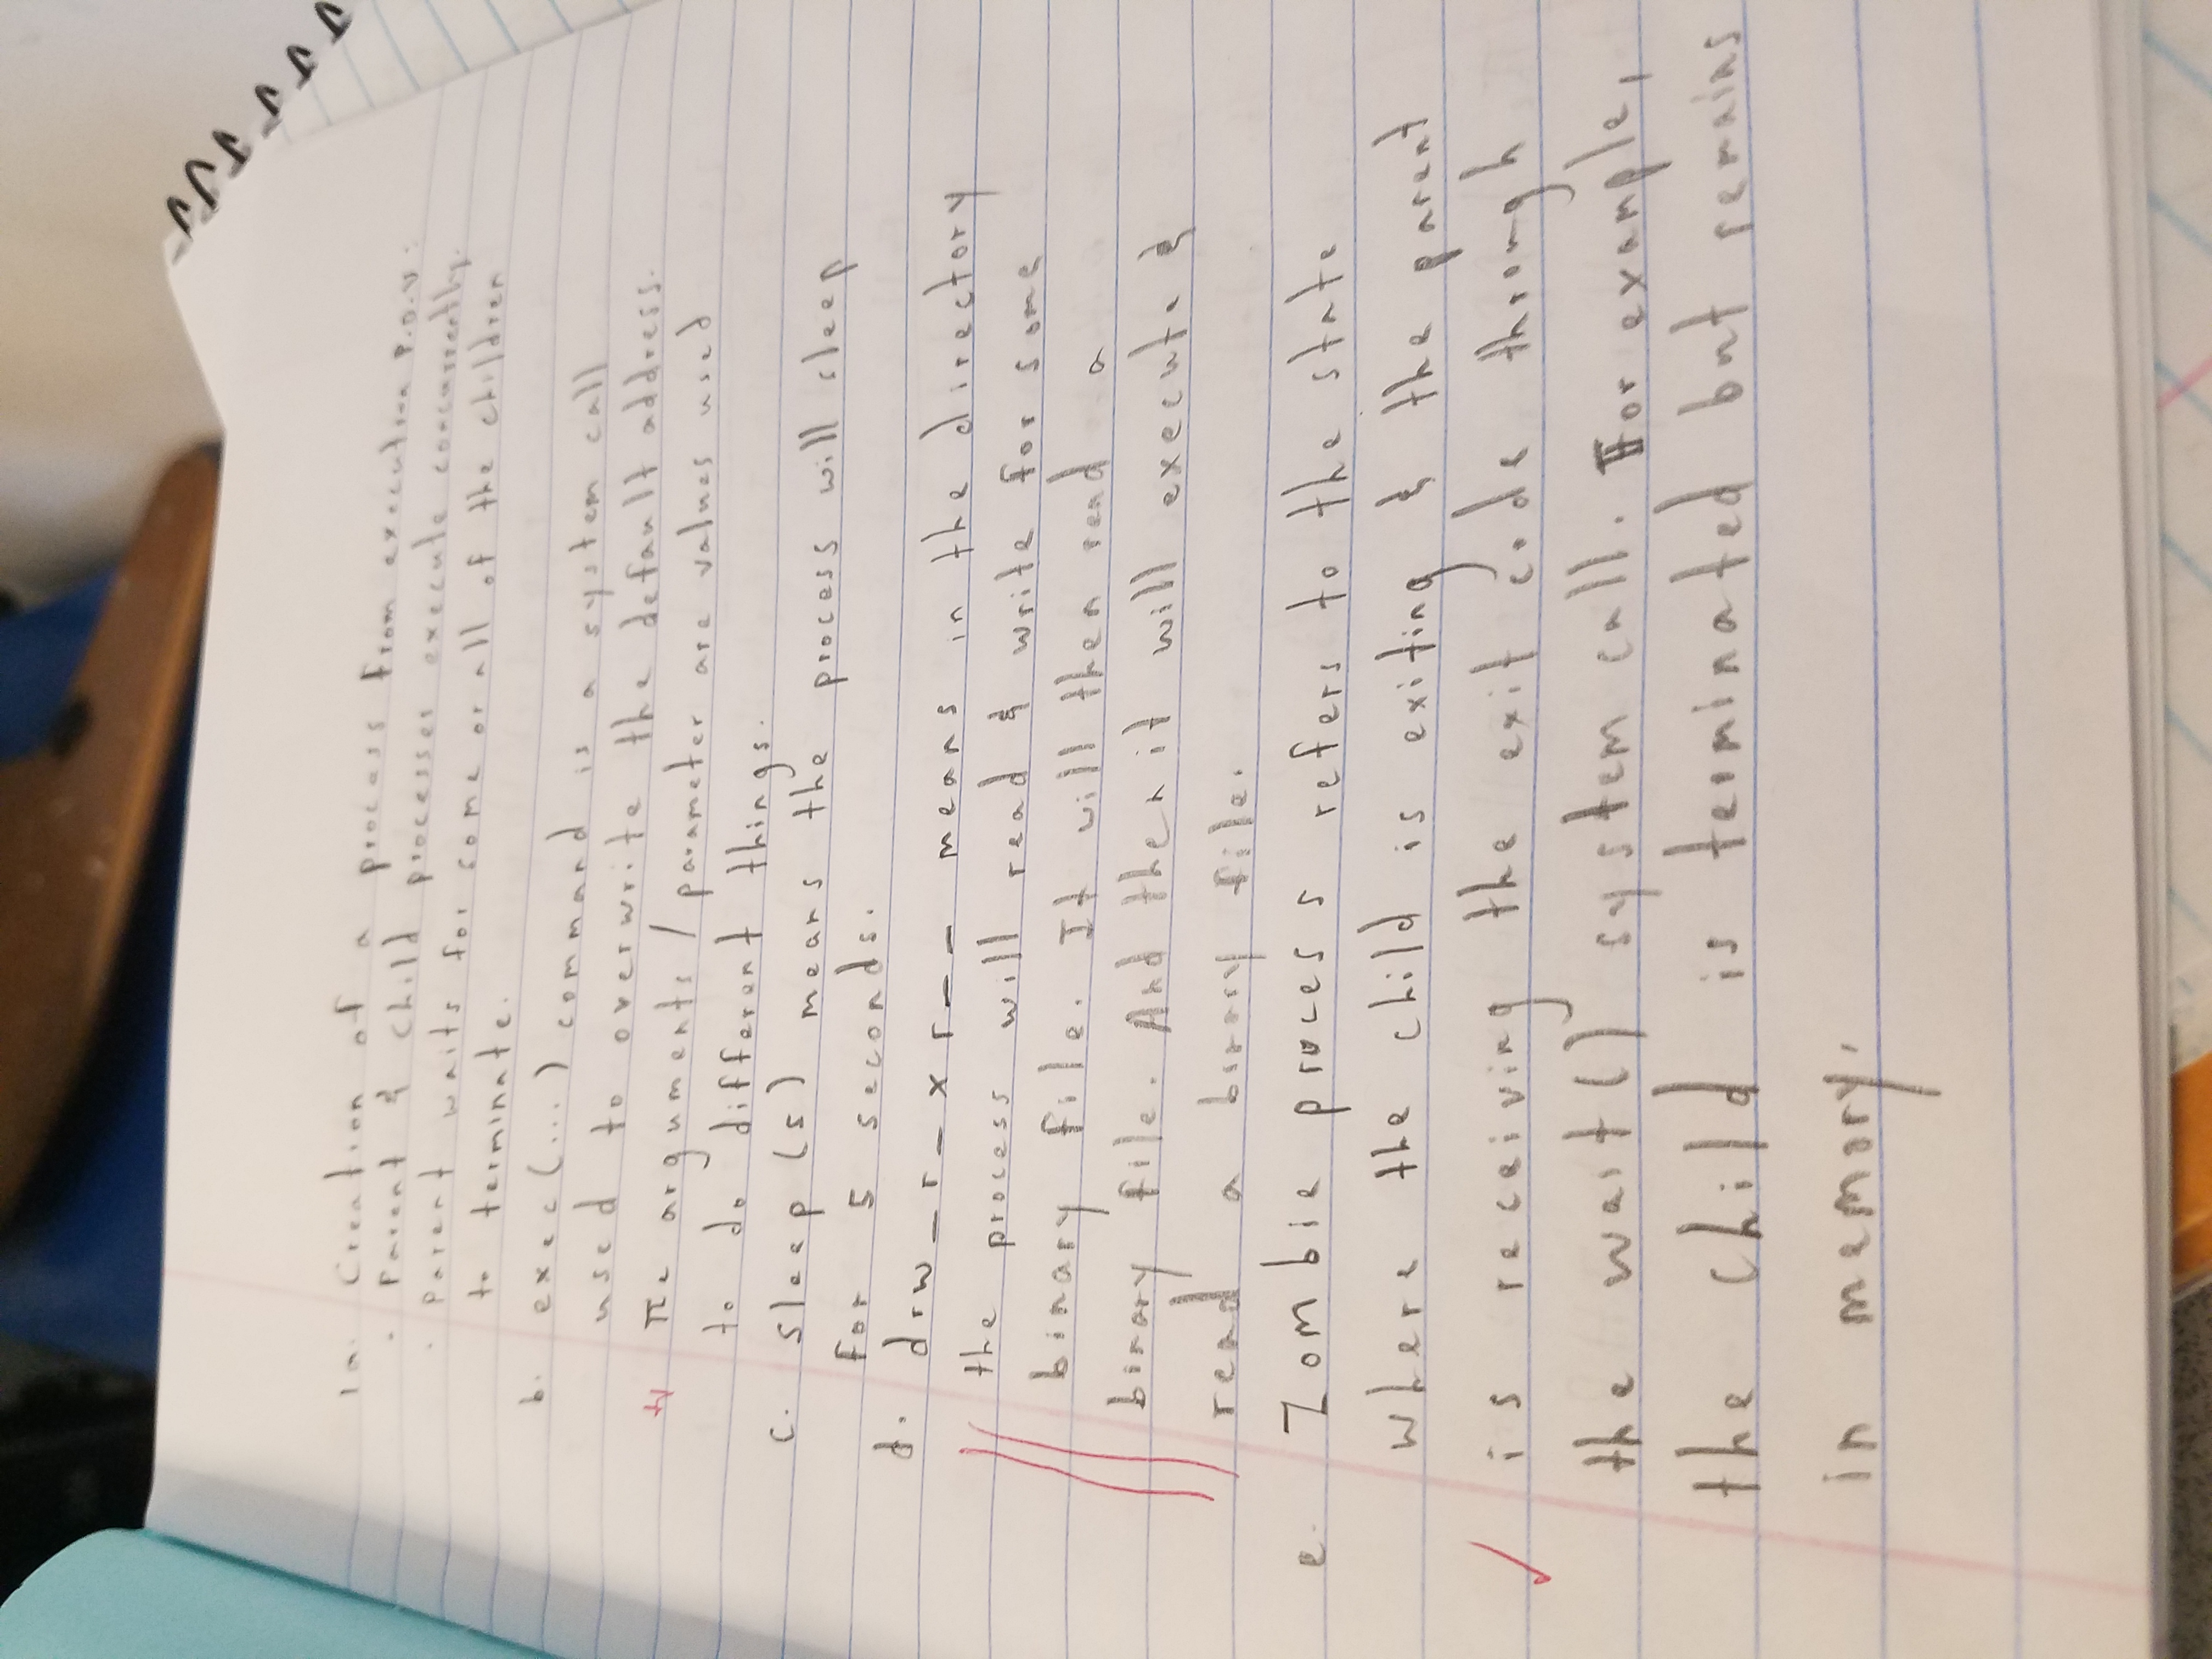 1a. Creation of a process from execution P.O.V:
· Parent & child processes execute concurrently.
· Parent waits for some or all of the children
to terminate.
b. exec(...) command is a system call
used to overwrite the default address.
The arguments / parameter are values used
to do different things.
c. sleep (5) means the process will sleep
for 5 seconds.
d. drw_r_xr__ means in the directory
the process will read & write for some
binary file. It will then read a
binary file. And then it will execute &
read a binary file.
e. Zombie process refers to the state
where the child is exiting & the parent
is receiving the exit code through
the wait() system call. For example,
the child is terminated but remains
in memory.